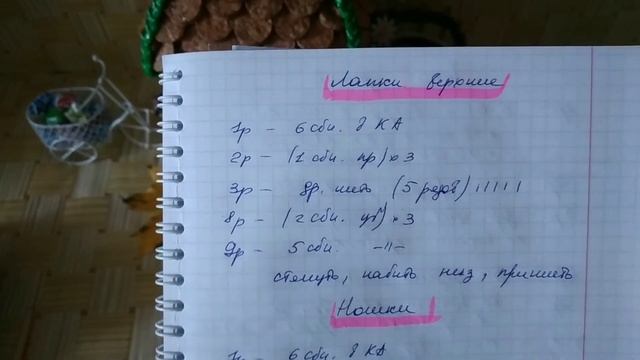 Лапки верхние
1р – 6 сбн. в КА
2р – (1 сбн. пр) × 3
3р – 8р. нить (5 рядов) ı ı ı ı ı
8р – (2 сбн. уб) × 3
9р – 5 сбн. –ıı–
стянуть, набить низ, пришить
Ножки
1р 6 сбн. в КА